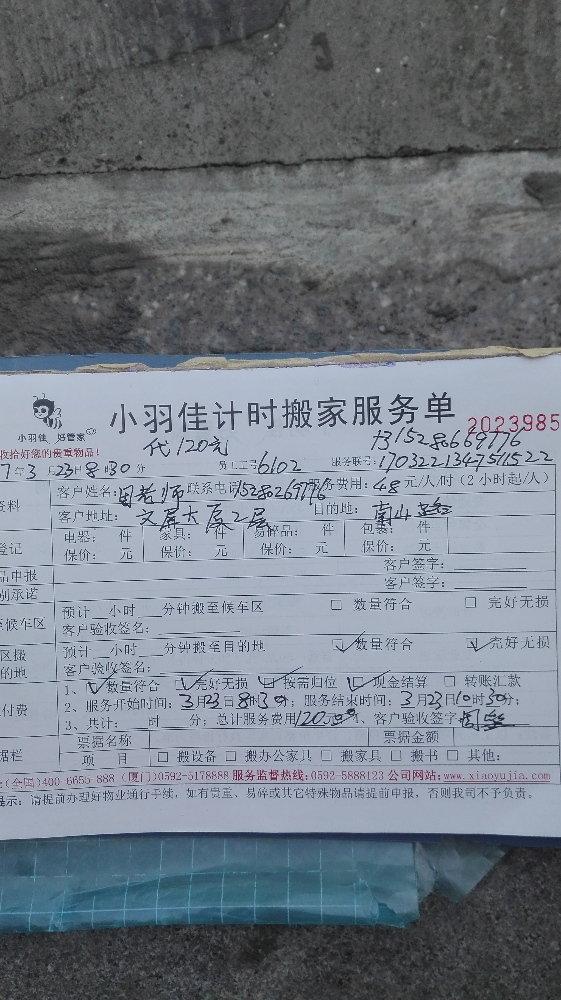 小羽佳 好管家
小羽佳计时搬家服务单
2023985
收拾好您的贵重物品!
代120元
15286669776
7年3月23日8时30分
员工工号6102
服务联号:
资料
客户姓名:周老师 联系电话 服务费用:48元/人/时(2小时起/人)
客户地址:文屏大厦2层 目的地:南山
登记
电器: 件 家具: 件 易碎品: 件 包装: 件
保价: 元 保价: 元 保价: 元 保价: 元
品申报
客户签字:
别承诺
客户签字:
预计__小时__分钟搬至候车区 □ 数量符合 □ 完好无损
至候车区
客户验收签名:
区搬
预计__小时__分钟搬至目的地 ☑数量符合 ☑完好无损
的地
客户验收签名:
1、☑数量符合 ☑完好无损 ☑按需归位 ☑现金结算 □ 转账汇款
付费
2、服务开始时间:3月23日8时30分;服务结束时间:3月23日10时30分;
3、共计: 时 分;总计服务费用120元 4、客户验收签字:
票据名称 票据金额
据栏
项 目 □ 搬设备 □ 搬办公家具 □ 搬家具 □ 搬书 □ 其他:
:(全国)400-6655-888 (厦门)0592-5178888 服务监督热线:0592-5888123 公司网站:www.xiaoyujia.com
提示:请提前办理好物业通行手续,如有贵重、易碎或其它特殊物品请提前申报,否则我司不予负责。